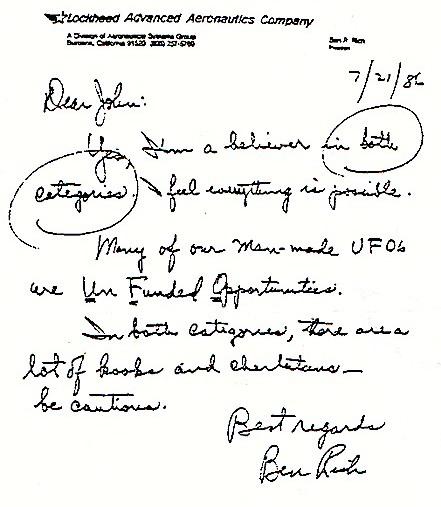 Lockheed Advanced Aeronautics Company
A Division of Aeronautical Systems Group
Burbank, California 91520 (805) 257-5790
Ben R. Rich
President
7/21/86
Dear John:
Yes, I'm a believer in both
categories. I feel everything is possible.
Many of our man-made UFOs
are Un Funded Opportunities.
In both categories, there are a
lot of kooks and charlatans —
be cautious.
Best regards
Ben Rich